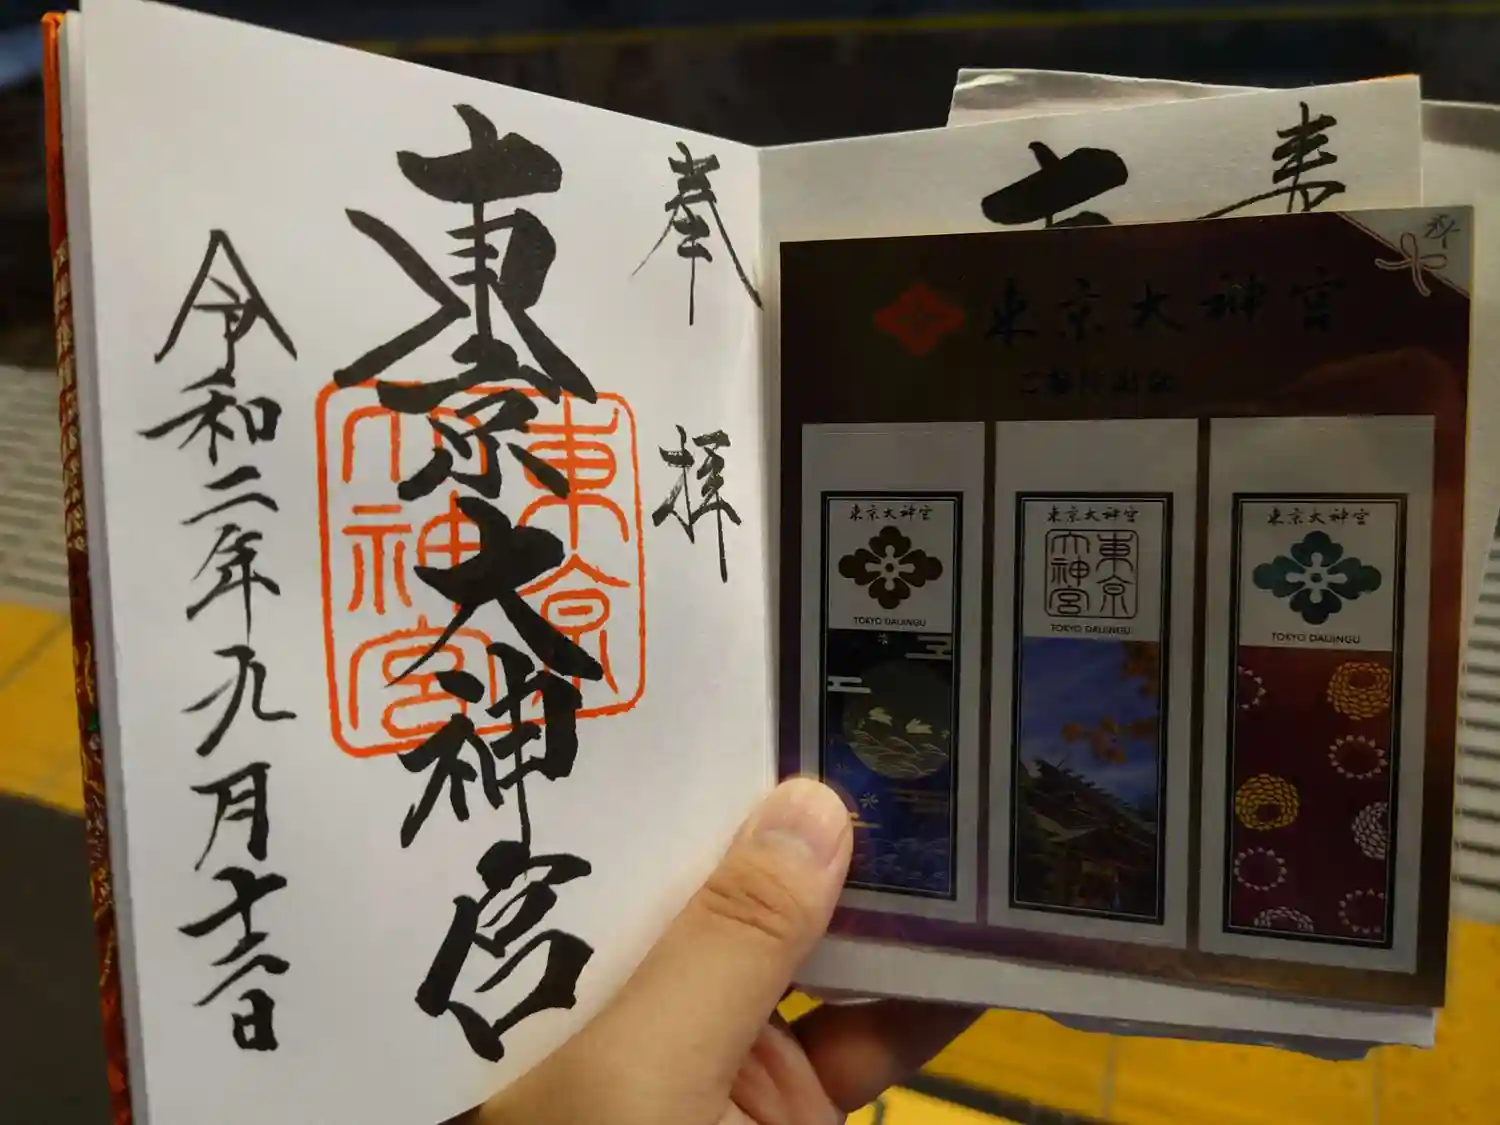 奉拝
東京大神宮
東京
大神宮
令和二年九月十六日
東京大神宮
東京大神宮
TOKYO DAIJINGU
東京大神宮
東京
大神宮
TOKYO DAIJINGU
東京大神宮
TOKYO DAIJINGU